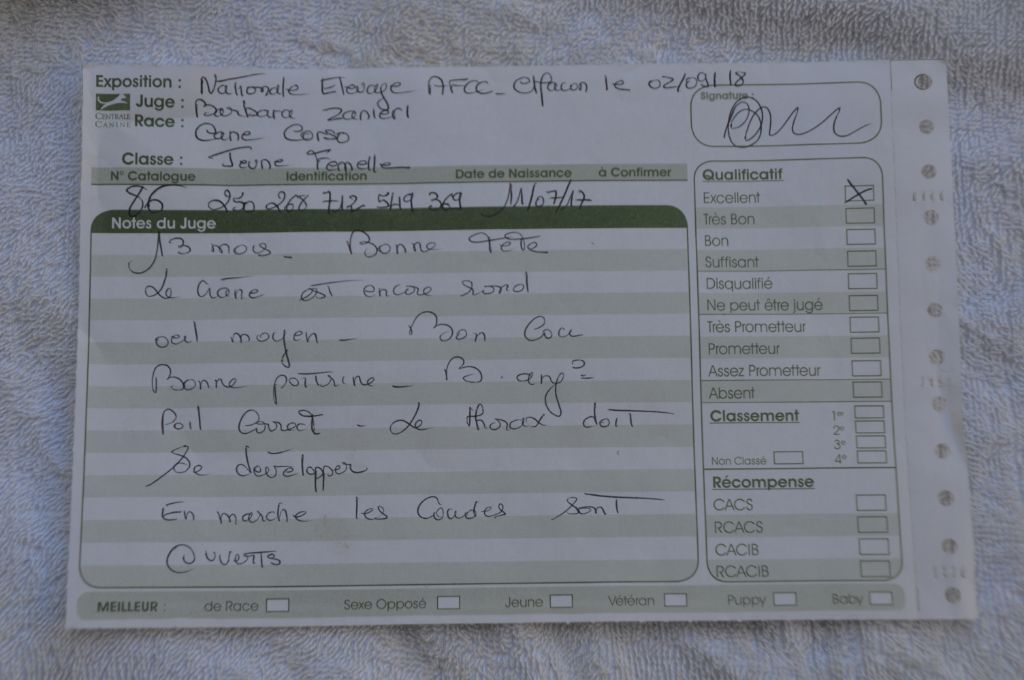 Exposition : Nationale Elevage AFCC - le 02/09/18
CENTRALE CANINE
Juge : Barbara Zanieri
Race : Cane Corso
Signature :
Classe : Jeune Femelle
N° Catalogue Identification Date de Naissance à Confirmer
86 250 268 712 549 369 11/07/17
Notes du Juge
13 mois - Bonne Tête
Le Crâne est encore rond
oeil moyen - Bon Cou
Bonne poitrine - B. ang°
Poil Correct - Le thorax doit
Se développer
En marche les Coudes sont
Ouverts
Qualificatif
Excellent X
Très Bon
Bon
Suffisant
Disqualifié
Ne peut être jugé
Très Prometteur
Prometteur
Assez Prometteur
Absent
Classement 1er
2e
3e
Non Classé 4e
Récompense
CACS
RCACS
CACIB
RCACIB
MEILLEUR : de Race Sexe Opposé Jeune Vétéran Puppy Baby